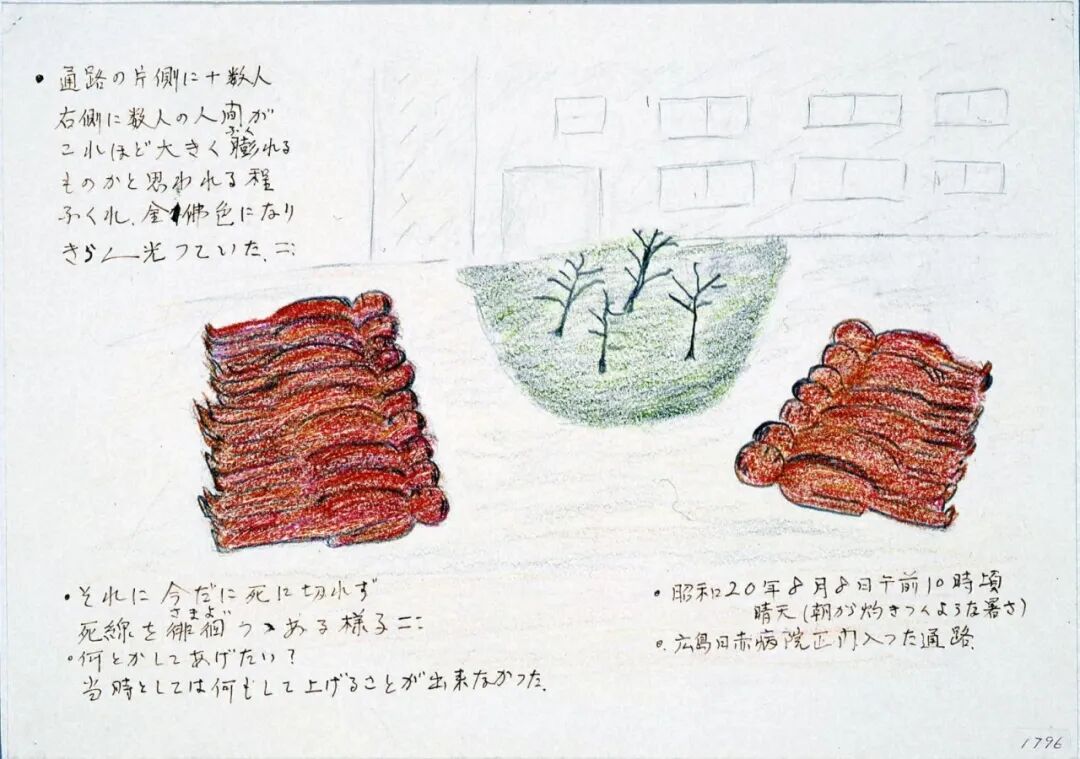 ・通路の片側に十数人
右側に数人の人間が
これほど大きく膨れる
ふく
ものかと思われる程
ふくれ、金佛色になり
きら〱光っていた、
・それに今だに死に切れず
さまよ
死線を徘徊つゝある様子
・何とかしてあげたい?
当時としては何もして上げることが出来なかった、
・昭和20年8月8日午前10時頃
晴天(朝から灼きつくような暑さ)
・広島日赤病院正門入った通路、
1796